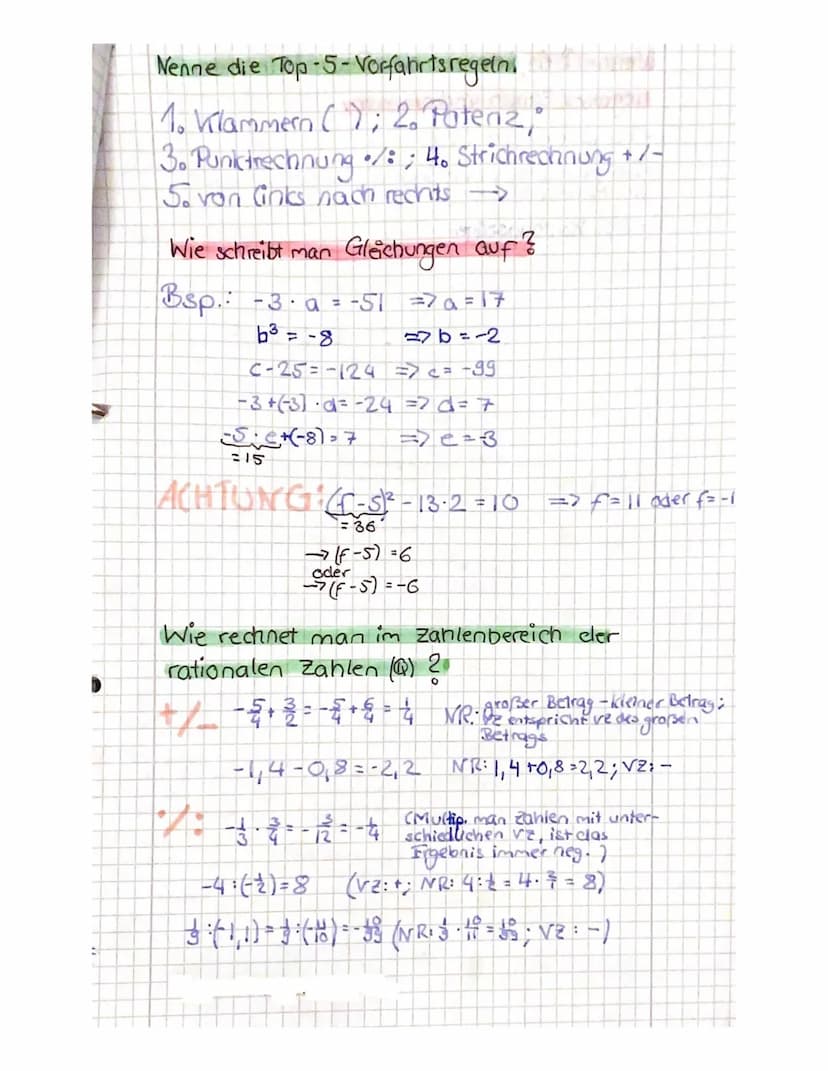 Nenne die Top-5-Vorfahrtsregeln.
1. Klammern ( ); 2. Potenz;
3. Punktrechnung •/: ; 4. Strichrechnung +/-
5. von links nach rechts →
Wie schreibt man Gleichungen auf?
Bsp.: -3 · a = -51 => a = 17
b³ = -8 => b = -2
c - 25 = -124 => c = -99
-3 + (-3) · d = -24 => d = 7
-5 · e + (-8) = 7 => e = -3
= 15
ACHTUNG: (f - 5)² - 13 · 2 = 10 => f = 11 oder f = -1
= 36
→ (f - 5) = 6
oder
→ (f - 5) = -6
Wie rechnet man im Zahlenbereich der
rationalen Zahlen (Q)?
+/- -5/4 + 3/2 = -5/4 + 6/4 = 1/4 NR.: großer Betrag - kleiner Betrag;
VZ entspricht VZ des großen
Betrags
-1,4 - 0,8 = -2,2 NR: 1,4 + 0,8 = 2,2; VZ: -
•/: -1/3 · 3/4 = -3/12 = -1/4 (Multip. man Zahlen mit unter-
schiedlichen VZ, ist das
Ergebnis immer neg.)
-4 : (-1/2) = 8 (VZ: +; NR: 4 : 1/2 = 4 · 2/1 = 8)
1/9 : (-1,1) = 1/9 : (-11/10) = -10/99 (NR: 1/9 · 10/11 = 10/99; VZ: -)